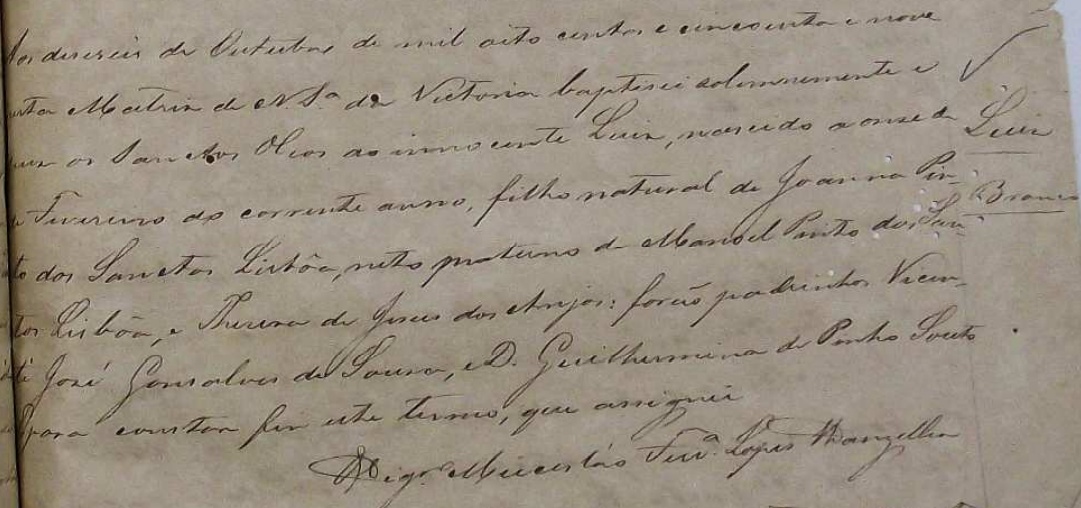 Aos deseseis de Outubro de mil oito centos e cincoenta e nove
nesta Matriz de N. Sa. da Victoria baptisei solemnemente e
puz os Sanctos Oleos ao innocente Luiz, nascido a onze de
Luiz
de Fevereiro do corrente anno, filho natural de Joanna Pin-
Branco
to dos Sanctos Lisbôa, neto materno de Manoel Pinto dos San-
tos Lisbôa, e Thereza de Jesus dos Anjos: forão padrinhos Vicen-
te José Gonsalves de Souza, e D. Guilhermina de Pinho Souto
E para constar fiz este termo, que assignei
Vigro. Miecesláo Ferra. Lopes Wanzeller